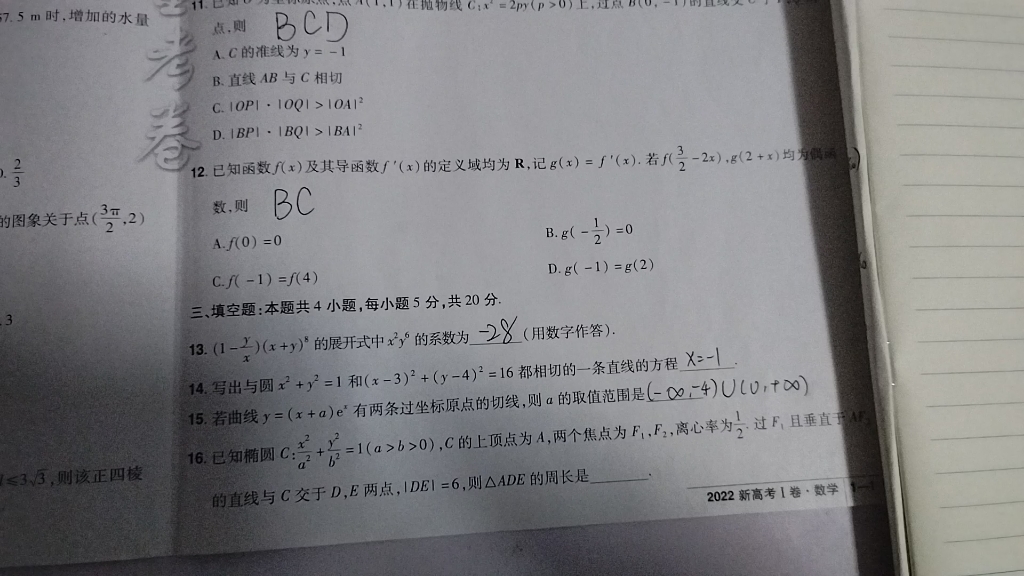 57.5 m 时,增加的水量
11. 已知 O 为坐标原点,点 A(1,1) 在抛物线 C:x² = 2py(p > 0) 上,过点 B(0, -1) 的直线交 C 于 P,
点,则 BCD
A. C 的准线为 y = -1
B. 直线 AB 与 C 相切
C. |OP| · |OQ| > |OA|²
D. |BP| · |BQ| > |BA|²
考卷
2/3
12. 已知函数 f(x) 及其导函数 f′(x) 的定义域均为 R,记 g(x) = f′(x). 若 f(3/2 - 2x), g(2 + x) 均为偶函
数,则 BC
的图象关于点(3π/2,2)
A. f(0) = 0
B. g(-1/2) = 0
C. f(-1) = f(4)
D. g(-1) = g(2)
三、填空题:本题共 4 小题,每小题 5 分,共 20 分.
.3
13. (1 - y/x)(x + y)⁸ 的展开式中 x²y⁶ 的系数为 -28 (用数字作答).
14. 写出与圆 x² + y² = 1 和(x - 3)² + (y - 4)² = 16 都相切的一条直线的方程 x=-1 .
15. 若曲线 y = (x + a)eˣ 有两条过坐标原点的切线,则 a 的取值范围是 (-∞,-4)∪(0,+∞)
16. 已知椭圆 C: x²/a² + y²/b² = 1(a > b > 0), C 的上顶点为 A,两个焦点为 F₁, F₂,离心率为 1/2. 过 F₁ 且垂直于 AF₂
l≤3√3,则该正四棱
的直线与 C 交于 D,E 两点,|DE| = 6,则 △ADE 的周长是______.
2022 新高考 I 卷 · 数学 1—